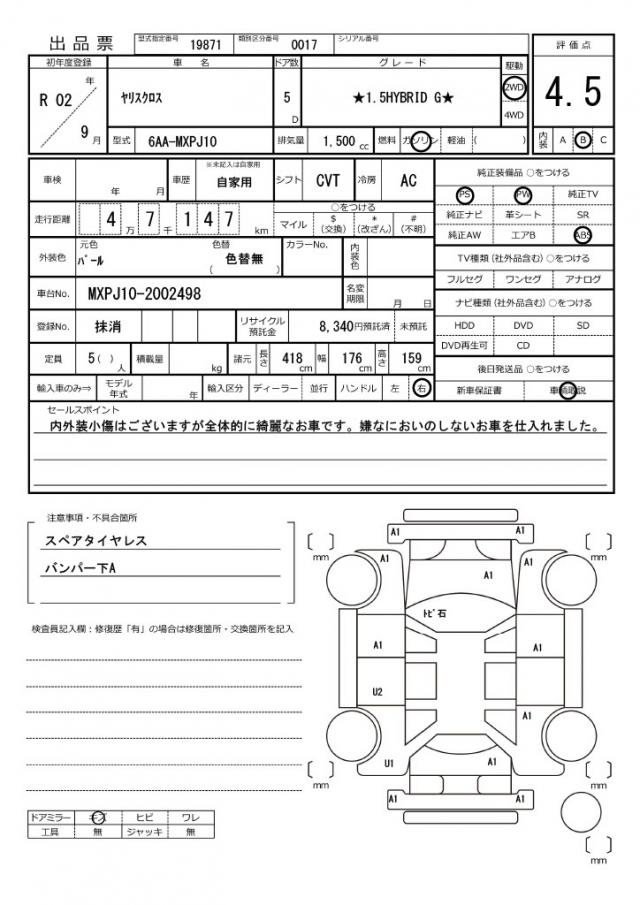 出品票 型式指定番号 19871 類別区分番号 0017 シリアル番号
初年度登録 車 名 ドア数 グレード 駆動 評価点
R 02 年 9 月 ﾔﾘｽｸﾛｽ 5 D ★1.5HYBRID G★ 2WD 4WD 4.5
型式 6AA-MXPJ10 排気量 1,500 cc 燃料 ガソリン 軽油 ( ) 内装 A B C
車検 年 月 車歴 ※未記入は自家用 自家用 シフト CVT 冷房 AC 純正装備品 ○をつける
PS PW 純正TV
走行距離 4 万 7 千 1 4 7 km ○をつける マイル $ (交換) * (改ざん) # (不明) 純正ナビ 革シート SR
純正AW エアB ABS
外装色 元色 ﾊﾟｰﾙ 色替 ( 色替無 ) カラーNo. 内装色 TV種類 (社外品含む) ○をつける
フルセグ ワンセグ アナログ
車台No. MXPJ10-2002498 名変期限 月 日 ナビ種類 (社外品含む) ○をつける
登録No. 抹消 リサイクル預託金 8,340 円預託済 未預託 HDD DVD SD
DVD再生可 CD
定員 5 ( ) 人 積載量 kg 諸元 長さ 418 cm 幅 176 cm 高さ 159 cm 後日発送品 ○をつける
輸入車のみ⇒ モデル年式 年 輸入区分 ディーラー 並行 ハンドル 左 右 新車保証書 車輌取説
セールスポイント
内外装小傷はございますが全体的に綺麗なお車です。嫌なにおいのしないお車を仕入れました。
注意事項・不具合箇所
スペアタイヤレス
バンパー下A
検査員記入欄：修復歴「有」の場合は修復箇所・交換箇所を記入
A1 A1
mm A1 A1 A1 mm
ﾄﾋﾞ石
A1 A1
U2
A1
U1 A1
mm A1 A1 mm
mm
ドアミラー キズ ヒビ ワレ
工具 無 ジャッキ 無